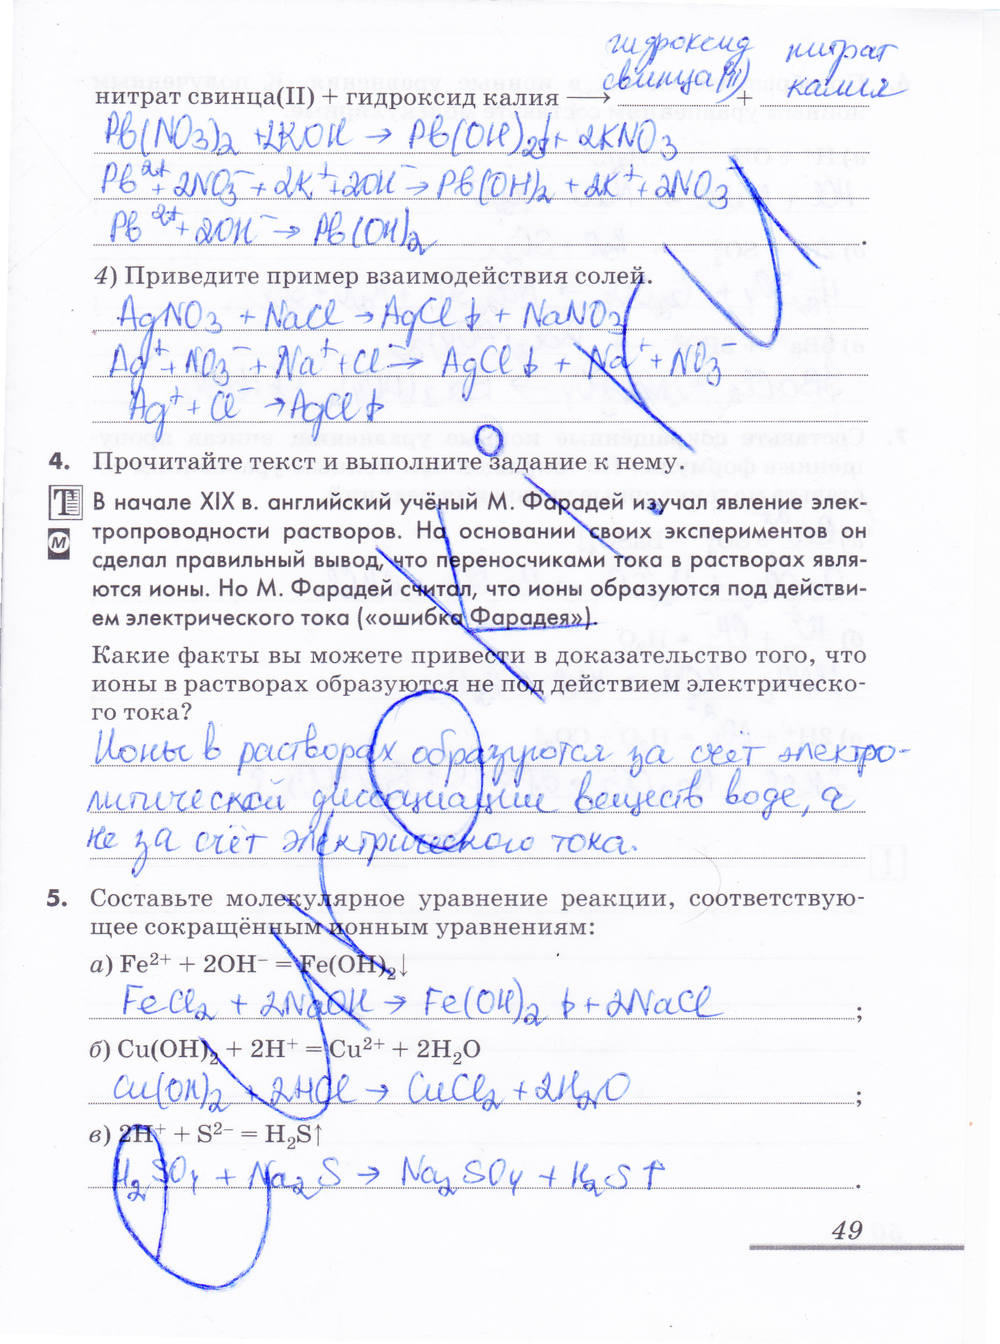 гидроксид нитрат
свинца(II) калия
нитрат свинца(II) + гидроксид калия ⟶ + 
Pb(NO3)2 + 2KOH → Pb(OH)2↓ + 2KNO3
Pb²⁺ + 2NO3⁻ + 2K⁺ + 2OH⁻ → Pb(OH)2 + 2K⁺ + 2NO3⁻
Pb²⁺ + 2OH⁻ → Pb(OH)2.
4) Приведите пример взаимодействия солей.
AgNO3 + NaCl → AgCl↓ + NaNO3
Ag⁺ + NO3⁻ + Na⁺ + Cl⁻ → AgCl↓ + Na⁺ + NO3⁻
Ag⁺ + Cl⁻ → AgCl↓
4. Прочитайте текст и выполните задание к нему.
Т В начале XIX в. английский учёный М. Фарадей изучал явление элек-
тропроводности растворов. На основании своих экспериментов он
М сделал правильный вывод, что переносчиками тока в растворах явля-
ются ионы. Но М. Фарадей считал, что ионы образуются под действи-
ем электрического тока («ошибка Фарадея»).
Какие факты вы можете привести в доказательство того, что
ионы в растворах образуются не под действием электрическо-
го тока?
Ионы в растворах образуются за счёт электро-
литической диссоциации веществ воде, а
не за счёт электрического тока.
5. Составьте молекулярное уравнение реакции, соответствую-
щее сокращённым ионным уравнениям:
а) Fe²⁺ + 2OH⁻ = Fe(OH)₂↓
FeCl2 + 2NaOH → Fe(OH)2↓ + 2NaCl;
б) Cu(OH)₂ + 2H⁺ = Cu²⁺ + 2H₂O
Cu(OH)2 + 2HCl → CuCl2 + 2H2O;
в) 2H⁺ + S²⁻ = H₂S↑
H2SO4 + Na2S → Na2SO4 + H2S↑.
49